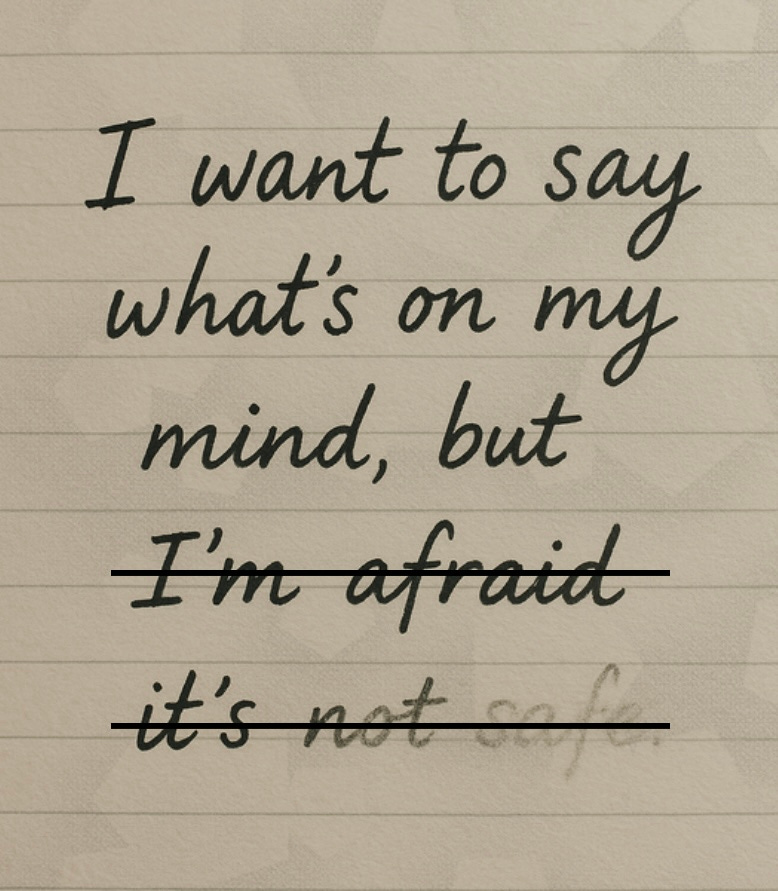 I want to say
what's on my
mind, but
I'm afraid
it's not safe.